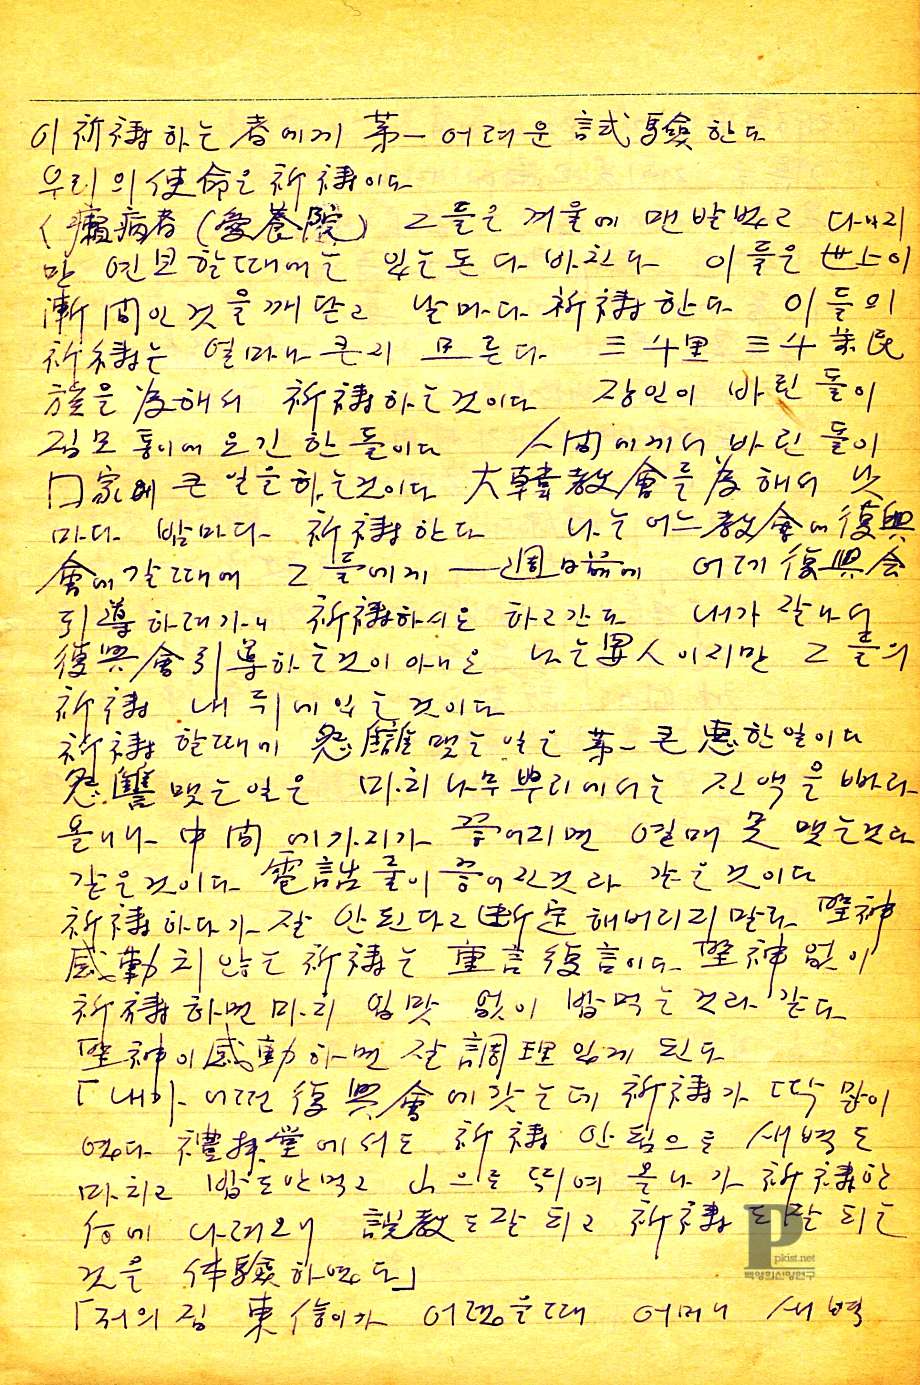 이 祈禱하는 者에게 第一 어려운 試驗한다
우리의 使命은 祈禱이다
(癩病者 (愛養院) 그들은 겨울에 맨발벗고 다니지
만 연보할때에는 있는돈 다 바친다 이들은 世上이
漸間인것을 깨닫고 날마다 祈禱한다 이들의
祈禱는 얼마나 큰지 모른다 三千里 三千萬民
族을 爲해서 祈禱하는것이다 장인이 바린 돌이
집모퉁이에 요긴한 돌이다 人間에게서 바린 돌이
口家에 큰일을하는것이다 大韓敎會를 爲해서 낮
마다 밤마다 祈禱한다 나는 어느 敎會에 復興
會에갈때에 그들에게 一週日前에 어데 復興会
引導하려가니 祈禱하시요 하고간다 내가 잘나서
復興會引導하는것이 아니요 나는 罪人이지만 그들의
祈禱 내 뒤에 있는것이다
祈禱할때에 怨讐맺는일은 第一 큰 惠한일이다
怨讐 맺는일은 마치 나무뿌리에서는 진액을 빠다
올니나 中間에가지가 끊어지면 열매 못 맺는것과
같은것이다 電話줄이 끊어진것과 같은것이다
祈禱하다가 잘 안된다고 断定해버리지말라 聖神
感動치 않는 祈禱는 重言復言이다 聖神없이
祈禱하면 마치 입맛 없이 밥먹는것과 같다
聖神이 感動하면 잘 調理있게 된다
「내가 어떤 復興會에갓는데 祈禱가 딱 맘이
였다 禮拜堂에서도 祈禱 안됨으로 새벽도
마치고 밥도안먹고 山으로 뛰여 올나가 祈禱한
后에 나려오니 說敎도잘되고 祈禱도잘되는
것을 体驗하였다」
「저의집 東信이가 어렸을때 어머니 새벽
pkist.net
백영희신앙연구